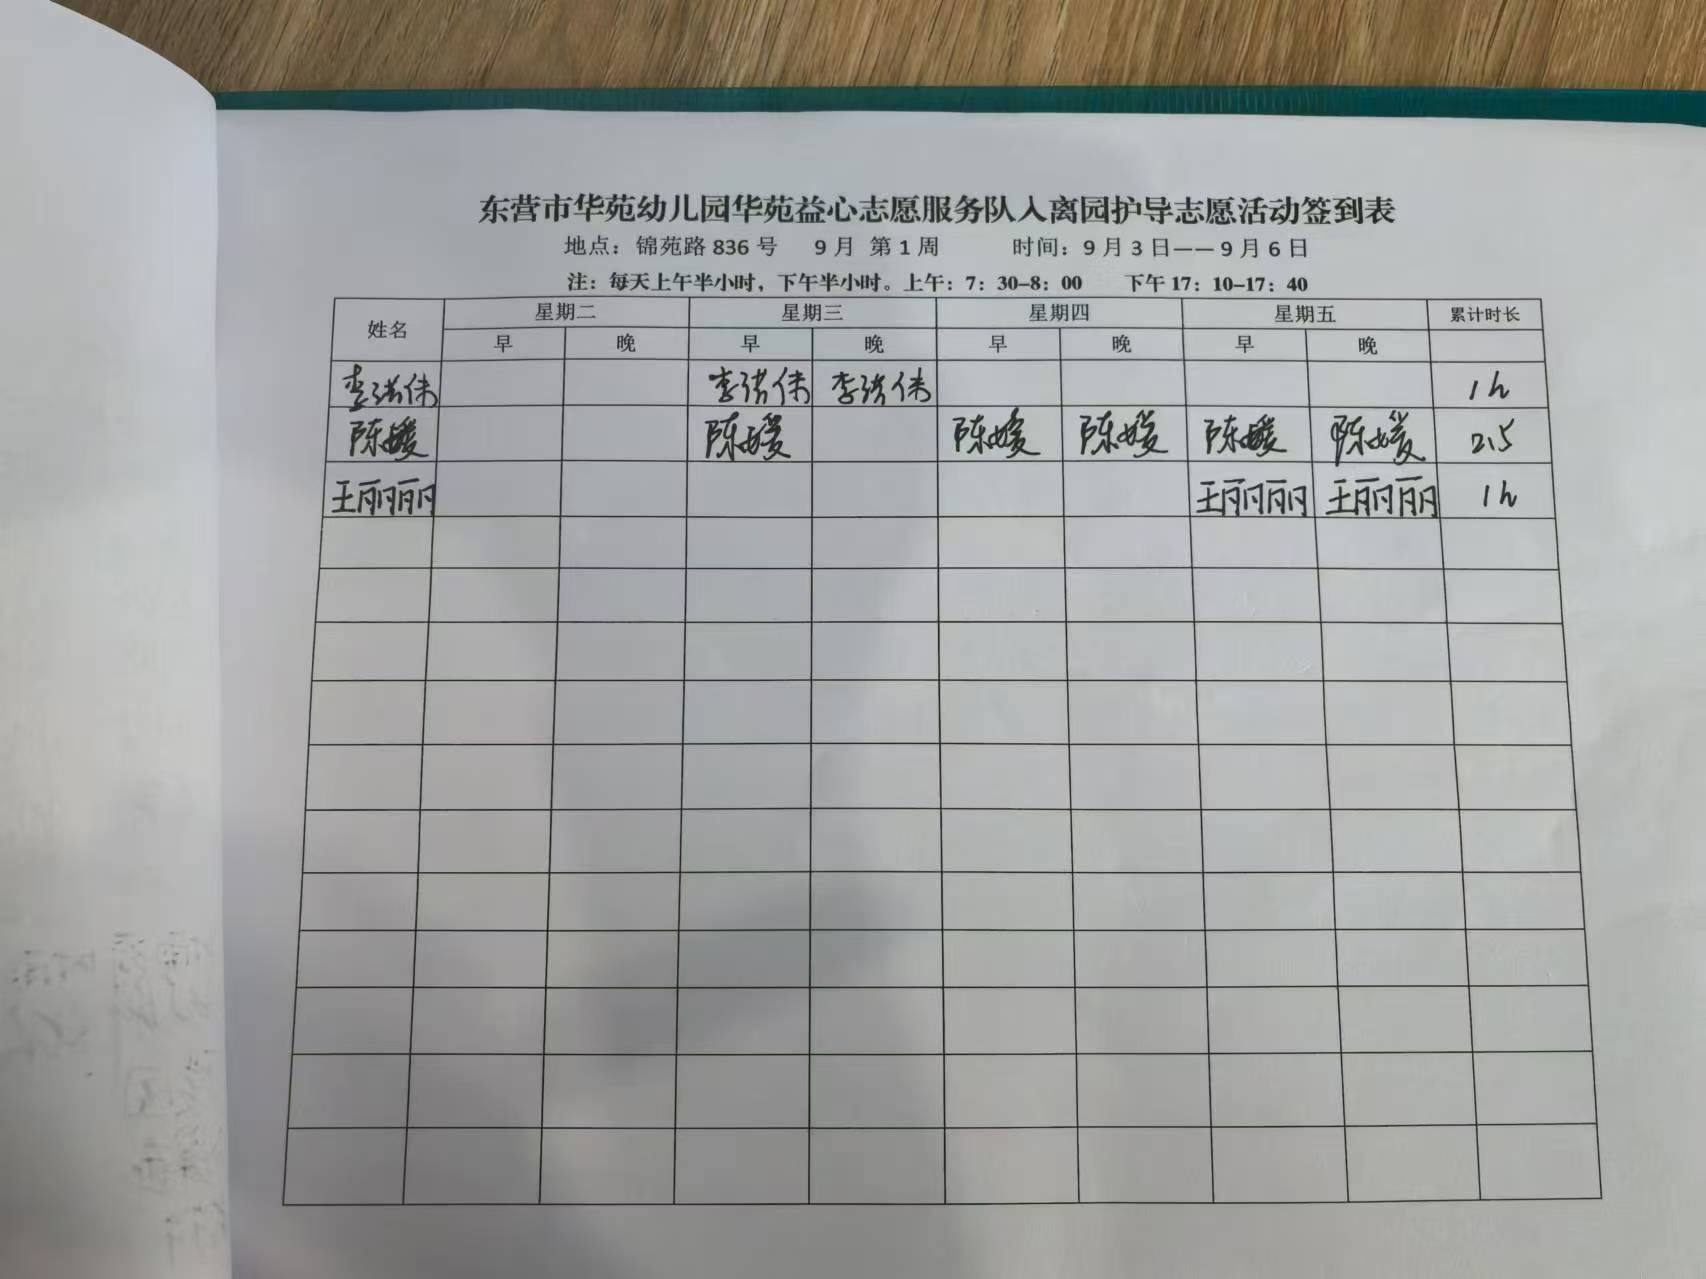 东营市华苑幼儿园华苑益心志愿服务队入离园护导志愿活动签到表
地点：锦苑路 836 号 9 月 第 1 周 时间：9 月 3 日——9 月 6 日
注：每天上午半小时，下午半小时。上午：7：30-8：00 下午 17：10-17：40
姓名 星期二 星期三 星期四 星期五 累计时长
早 晚 早 晚 早 晚 早 晚
李 李 李 1h
陈媛 陈媛 陈媛 陈媛 陈媛 陈媛 2.5
王丽丽 王丽丽 王丽丽 1h